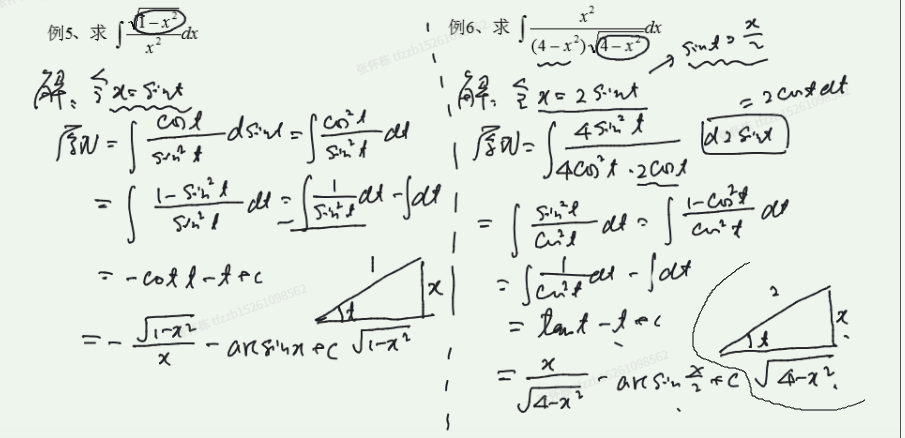 例5、求 ∫ √(1-x²)/x² dx
解: 令 x = sint
原式 = ∫ cost/sin²t dsint = ∫ cos²t/sin²t dt
= ∫ (1-sin²t)/sin²t dt = ∫ 1/sin²t dt - ∫dt
= -cot t - t + c
1
x
t
√(1-x²)
= - √(1-x²)/x - arcsinx + c
例6、求 ∫ x²/((4-x²)√(4-x²)) dx
→ sint = x/2
解: 令 x = 2sint
= 2costdt
原式 = ∫ 4sin²t/(4cos²t·2cost) d2sint
= ∫ sin²t/cos²t dt = ∫ (1-cos²t)/cos²t dt
= ∫ 1/cos²t dt - ∫dt
= tant - t + c
2
x
t
√(4-x²)
= x/√(4-x²) - arcsin x/2 + c